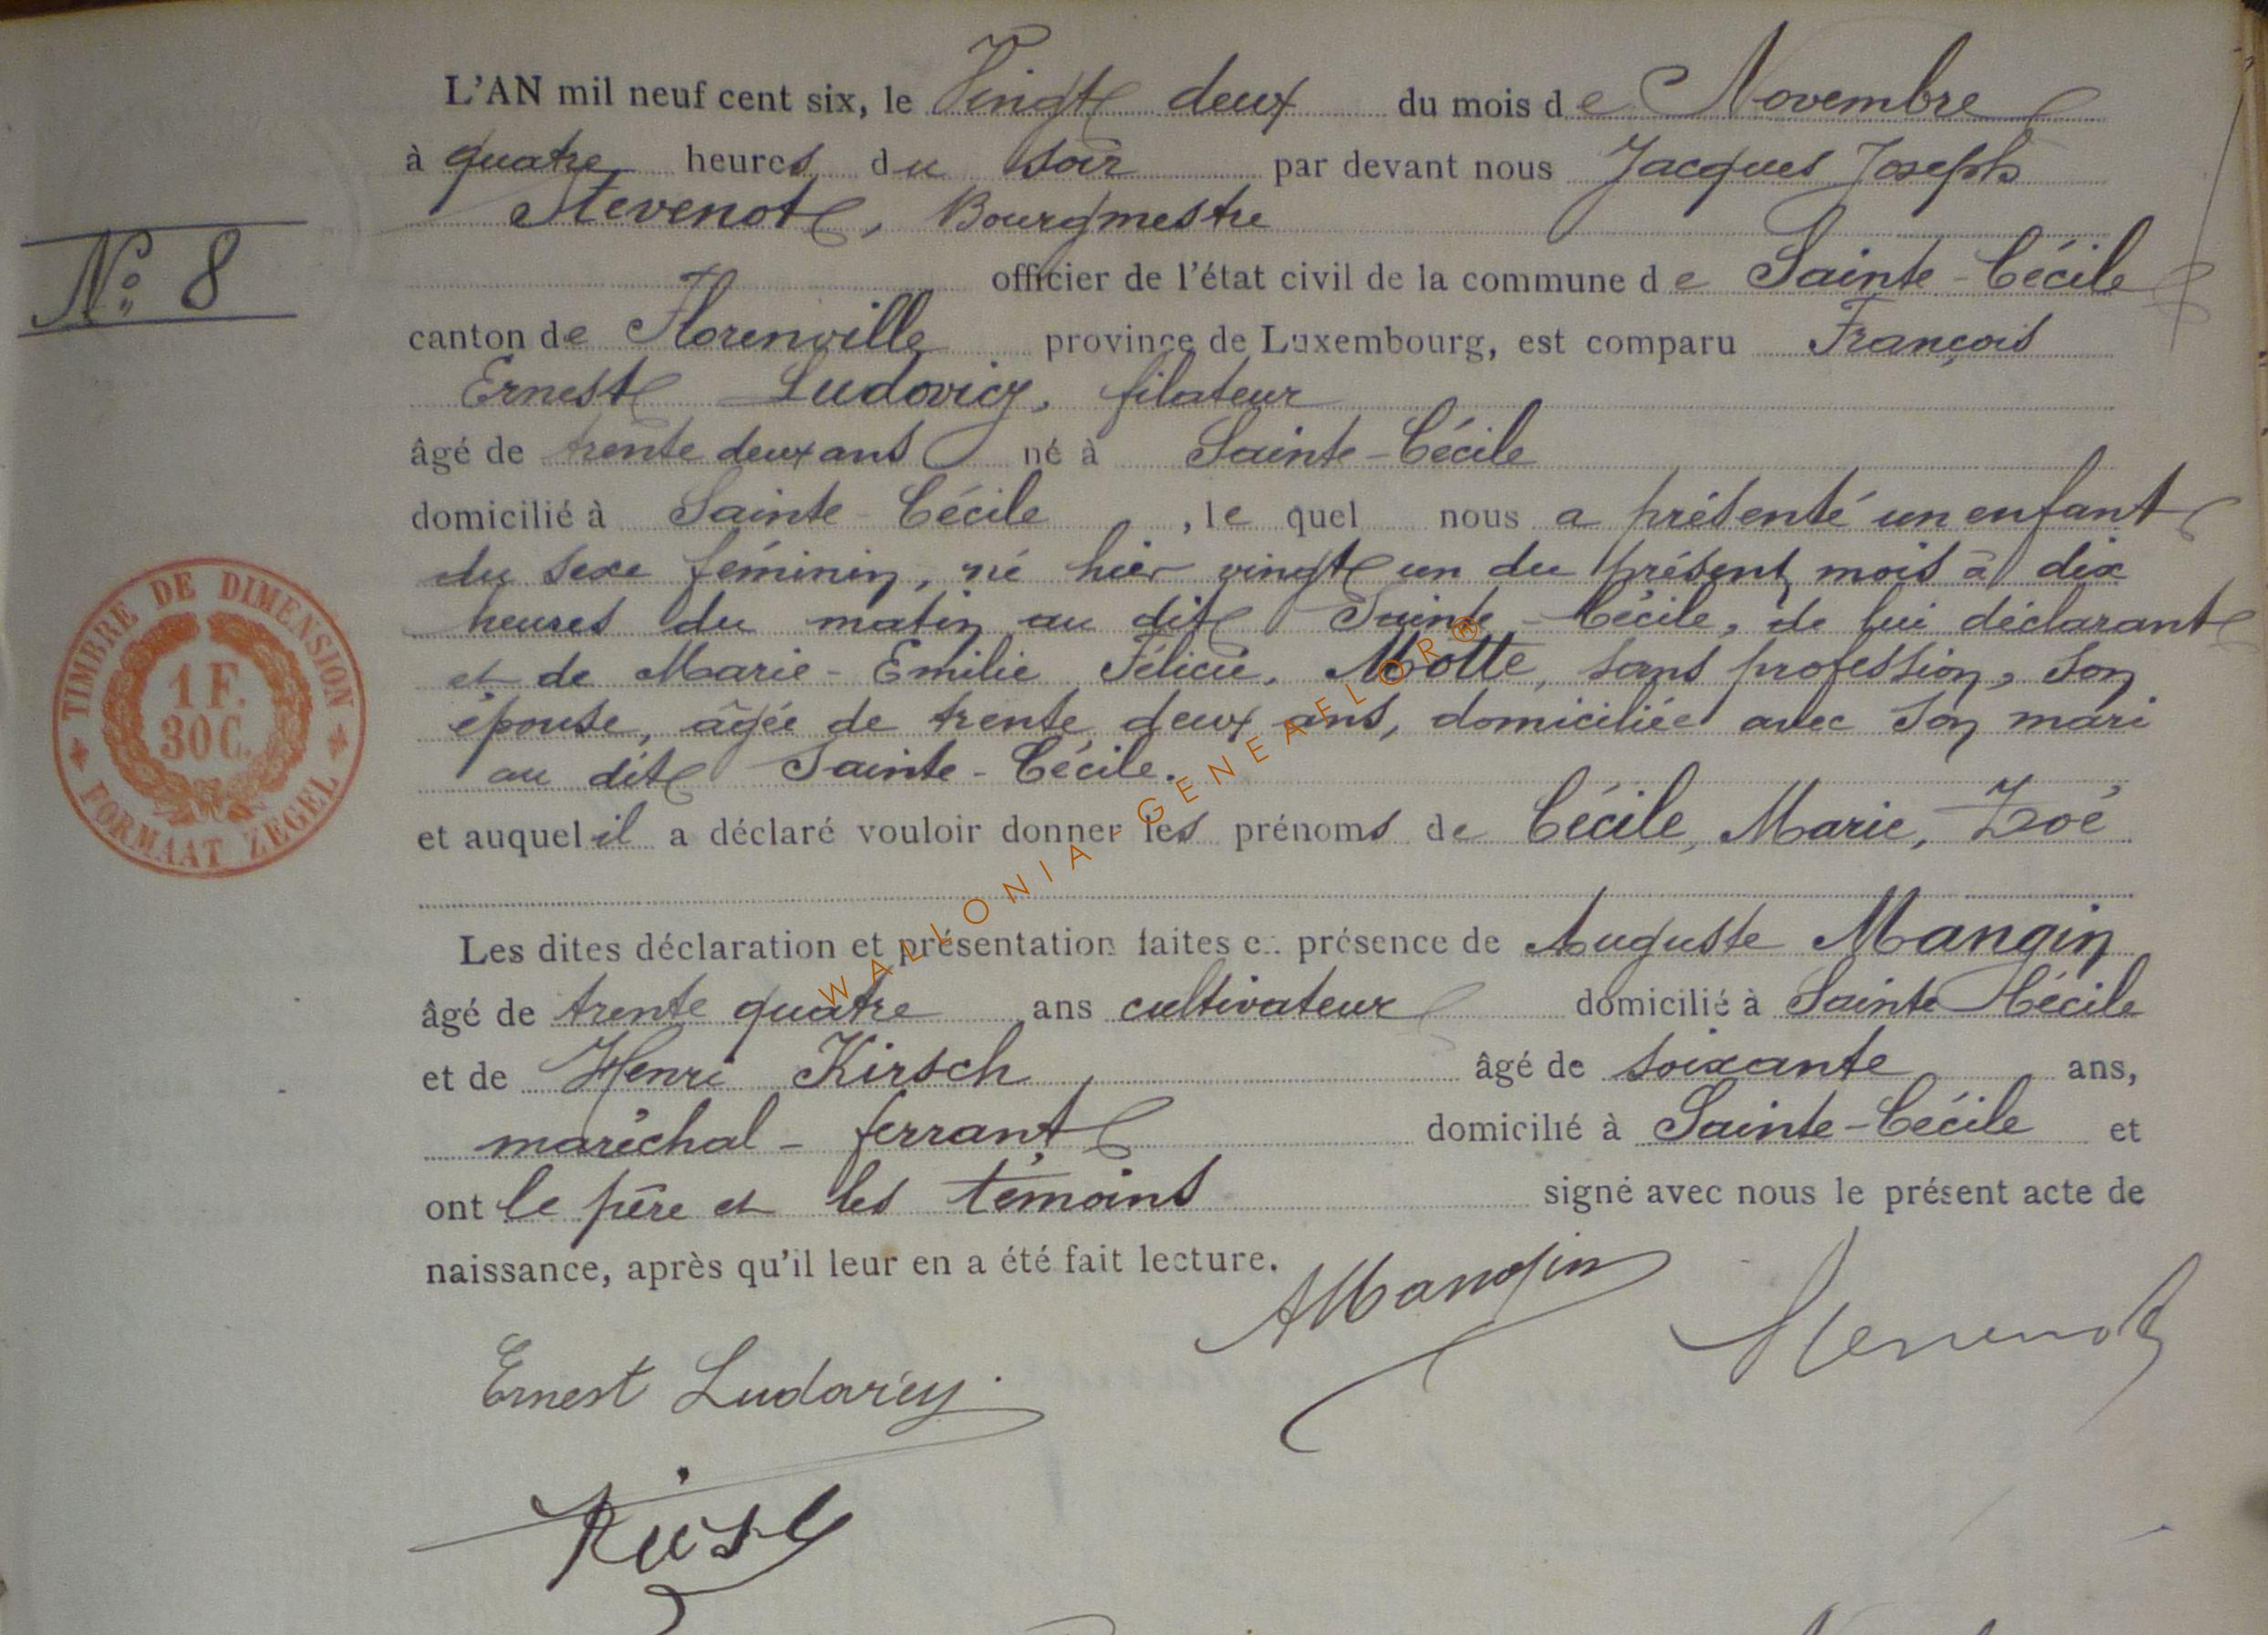 L'AN mil neuf cent six, le Vingt deux du mois de Novembre
à quatre heures du soir par devant nous Jacques Joseph
Stevenot, Bourgmestre
officier de l'état civil de la commune de Sainte-Cécile
N° 8
canton de Florenville province de Luxembourg, est comparu François
Ernest Ludovicy, filateur
âgé de trente deux ans né à Sainte-Cécile
domicilié à Sainte-Cécile, le quel nous a présenté un enfant
du sexe féminin, né hier vingt un du présent mois à dix
heures du matin au dit Sainte-Cécile, de lui déclarant
et de Marie-Emilie Félicie, Motte, sans profession, son
épouse, âgée de trente deux ans, domiciliée avec son mari
au dit Sainte-Cécile.
TIMBRE DE DIMENSION
1 F.
30 C.
FORMAAT ZEGEL
et auquel il a déclaré vouloir donner les prénoms de Cécile, Marie, Zoé
WALLONIA GENEAFLOR®
Les dites déclaration et présentation faites en présence de Auguste Mangin
âgé de trente quatre ans cultivateur domicilié à Sainte Cécile
et de Henri Kirsch, âgé de soixante ans,
maréchal-ferrant domicilié à Sainte-Cécile et
ont le père et les témoins signé avec nous le présent acte de
naissance, après qu'il leur en a été fait lecture.
AMangin
Stevenot
Ernest Ludovicy.
Kirsch